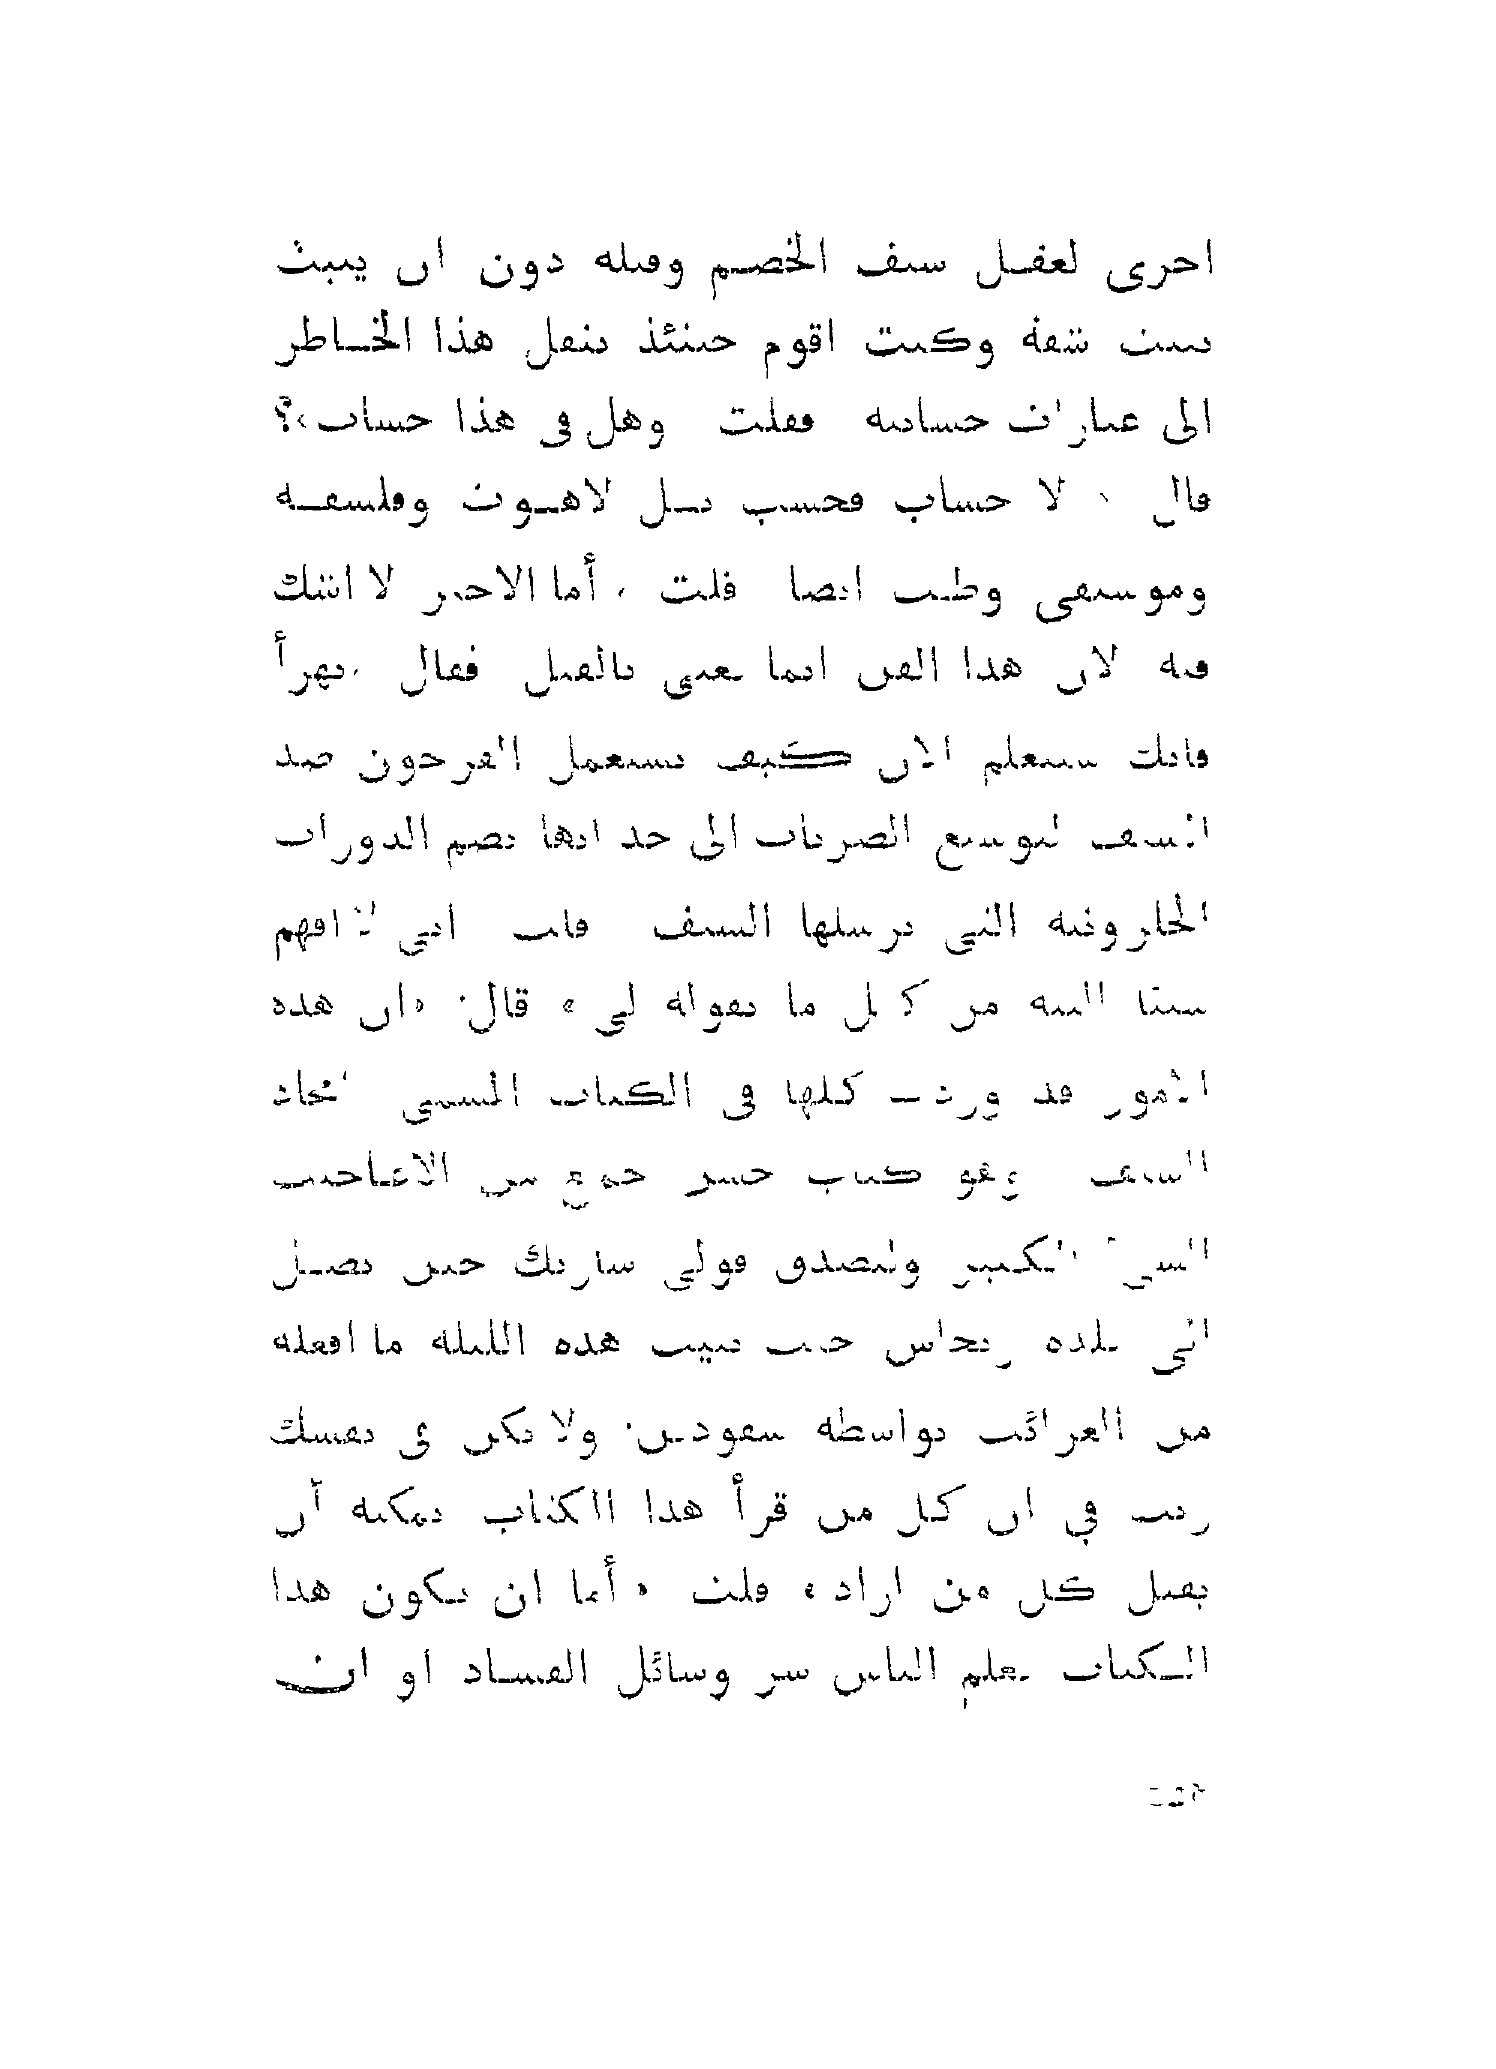 اخرى لعقل سيف الخصم وقتله دون ان ينبث
ببنت شفة وكنت اقوم حينئذ بنقل هذا الخاطر
الى عبارات حسابية فقلت وهل في هذا حساب،؟
قال ، لا حساب فحسب بل لاهوت وفلسفة
وموسيقى وطب ايضا قلت ، أما الاخير لا اشك
فيه لان هذا الفن انما يعنى بالقتل فقال ،تهزأ
فانك ستعلم الان كيف تستعمل الفرجون ضد
السيف لتوسيع الضربات الى حد انها تضم الدورات
الحلزونية التي يرسلها السيف قلت اني لا افهم
شيئا البتة من كل ما تقوله لي » قال: «ان هذه
الامور قد وردت كلها في الكتاب المسمى
السيف وهو كتاب حسن جمع من الاعاجيب
الشيء الكثير ولتصدق قولي ساريك حين نصل
الى بلدة حيث نبيت هذه الليلة ما افعله
من الغرائب بواسطة سفودين. ولا يكن في نفسك
ريب في ان كل من قرأ هذا الكتاب يمكنه أن
يقتل كل من اراد» قلت «أما ان يكون هذا
الكتاب يعلم الناس سر وسائل الفساد او ان